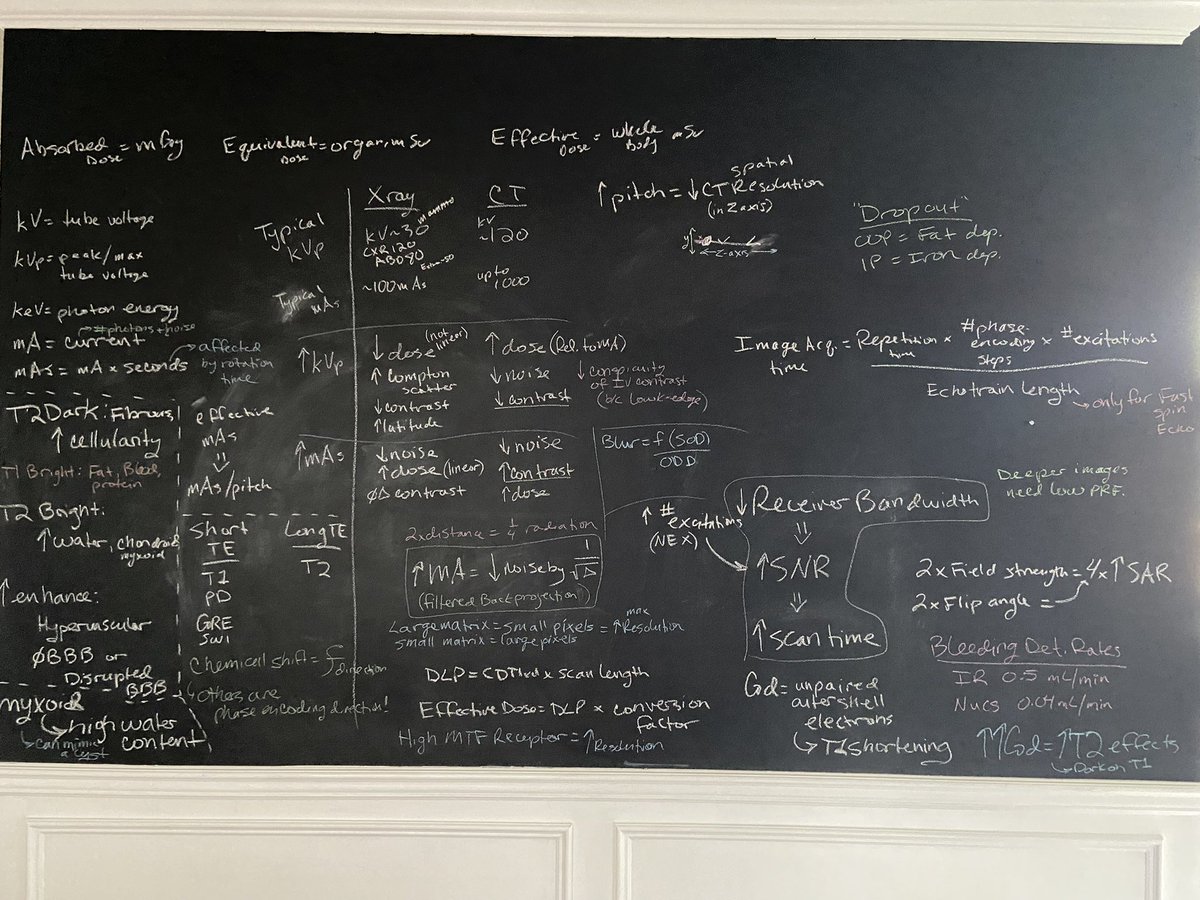 Absorbed Dose = mGy
Equivalent Dose = organ, mSv
Effective Dose = Whole Body mSv
kV = tube voltage
kVp = peak/max
tube voltage
keV = photon energy
# photons + noise
mA = current
mAs = mA × seconds
→ affected
by rotation
time
Typical
kVp
Typical
mAs
Xray
kV ~30 mammo
CXR 120
ABD 90
~100 mAs
CT
kV
~120
up to
1000
↑ pitch = ↓ CT spatial Resolution
(in Z axis)
y
← z-axis →
"Dropout"
OOP = Fat dep.
IP = Iron dep.
↑ kVp
↓ dose (not linear)
↑ Compton
scatter
↓ contrast
↑ latitude
↑ dose (Rel. to mA)
↓ noise
↓ contrast
↓ conspicuity
of IV contrast
(b/c low k-edge)
Image Acq. time = Repetition time × # phase encoding steps × # excitations
Echotrain Length
→ only for Fast
spin
Echo
↑ mAs
↓ noise
↑ dose (linear)
Ø Δ contrast
↓ noise
↑ contrast
↑ dose
Blur = f (SOD)
ODD
T2 Dark: Fibrous,
↑ cellularity
T1 Bright: Fat, Blood,
protein
T2 Bright:
↑ water, chondroid
myxoid
↑ enhance:
Hypervascular
Ø BBB or
Disrupted
BBB
myxoid
↳ high water
content
↳ can mimic
a cyst
effective
mAs
⇓
mAs/pitch
Short
TE
T1
PD
GRE
SWI
Long TE
T2
Chemical shift = f direction
↳ others are
phase encoding direction!
2x distance = 1/4 radiation
↑ mA = ↓ noise by 1/√Δ
(filtered Back projection)
Large matrix = small pixels = ↑ max Resolution
small matrix = large pixels
DLP = CDTIvol × scan length
Effective Dose = DLP × conversion
factor
High MTF Receptor = ↑ Resolution
↑ # excitations
(NEX)
↓ Receiver Bandwidth
⇓
↑ SNR
⇓
↑ scan time
Gd = unpaired
outershell
electrons
↳ T1 shortening
Deeper images
need low PRF.
2x Field strength = 4x ↑ SAR
2x Flip angle =
Bleeding Det. Rates
IR 0.5 mL/min
Nucs 0.04 mL/min
↑↑ Gd = ↑ T2 effects
↳ Dark on T1